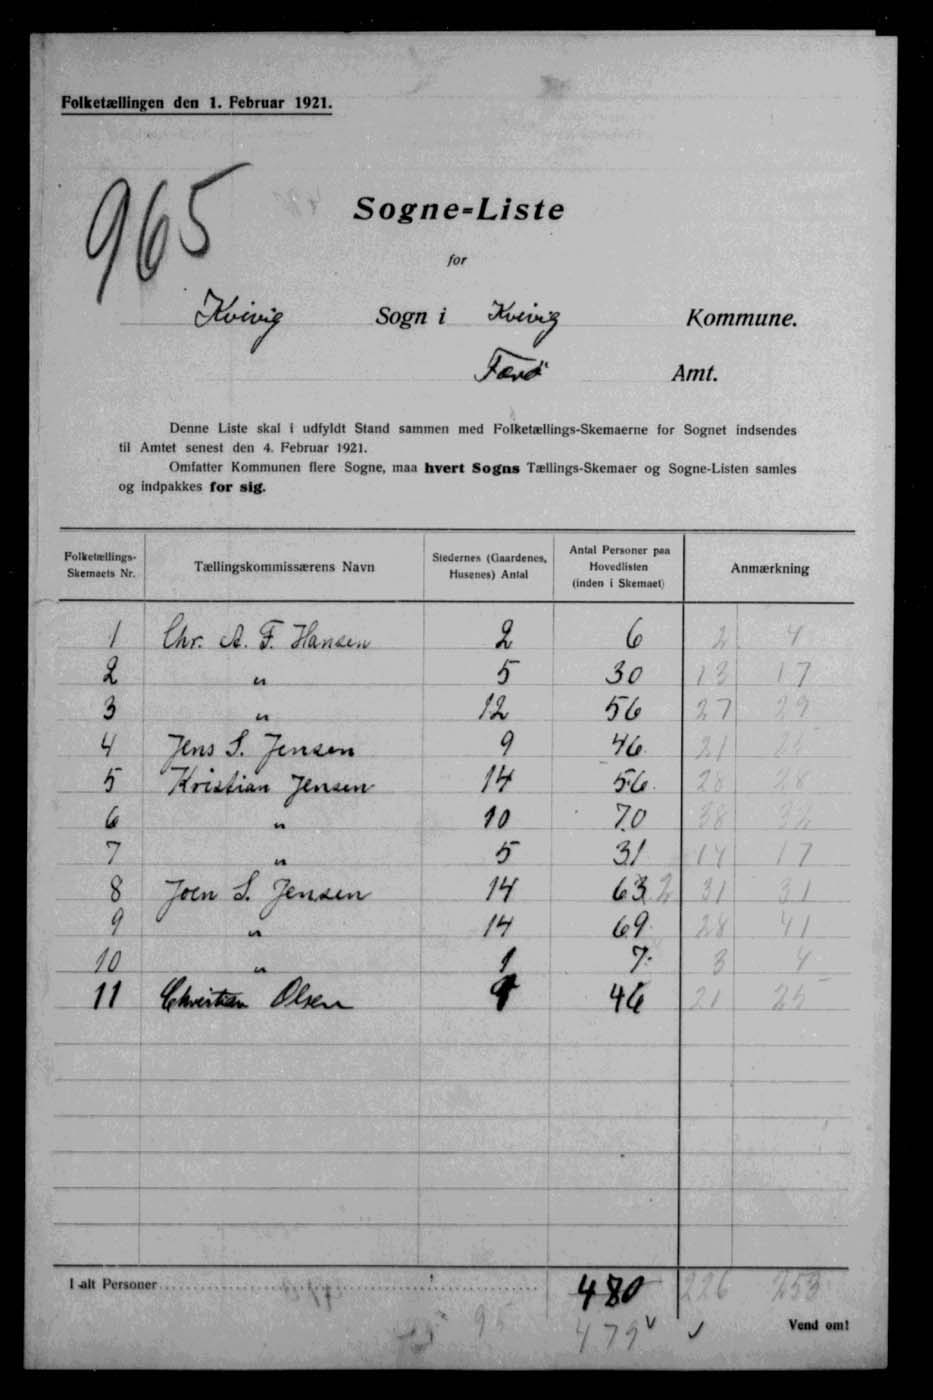 Folketællingen den 1. Februar 1921.
965
Sogne-Liste
for
Kvivig Sogn i Kvivig Kommune.
Færö Amt.
Denne Liste skal i udfyldt Stand sammen med Folketællings-Skemaerne for Sognet indsendes
til Amtet senest den 4. Februar 1921.
Omfatter Kommunen flere Sogne, maa hvert Sogns Tællings-Skemaer og Sogne-Listen samles
og indpakkes for sig.
Folketællings-Skemaets Nr. Tællingskommissærens Navn Stedernes (Gaardenes, Husenes) Antal Antal Personer paa Hovedlisten (inden i Skemaet) Anmærkning
1 Chr. A. F. Hansen 2 6 2 4
2 " 5 30 13 17
3 " 12 56 27 29
4 Jens S. Jensen 9 46 21 25
5 Kristian Jensen 14 56 28 28
6 " 10 70 38 32
7 " 5 31 14 17
8 Joen S. Jensen 14 63 2 31 31
9 " 14 69 28 41
10 " 1 7 3 4
11 Christian Olsen 9 46 21 25
I alt Personer 480 226 253
95 479 ✓ ✓
Vend om!